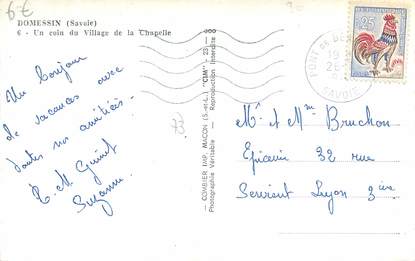 6€
DOMESSIN (Savoie)
6 - Un coin du Village de la Chapelle
Un bonjour
de vacances avec
toutes nos amitiés.
Suzanne
73
COMBIER IMP. MACON (S.-et-L.) "CIM"
Photographie Véritable - Reproduction Interdite
0,25
PONT DE BE
SAVOIE
Mr et Mme Bruchon
Epicerie 32 rue
Servient Lyon 3ième